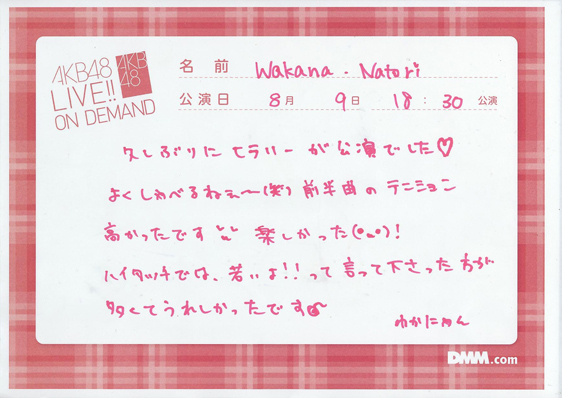 AKB48
LIVE!!
ON DEMAND
AKB
48
名前 Wakana . Natori
公演日 8月 9日 18:30 公演
久しぶりにヒラリーが公演でした♡
よくしゃべるねぇ〜(笑) 前半曲のテンション
高かったです 楽しかった(•ᴗ•)!
ハイタッチでは、若いよ!!って言って下さった方が
多くてうれしかったです
わかにゃん
DMM.com